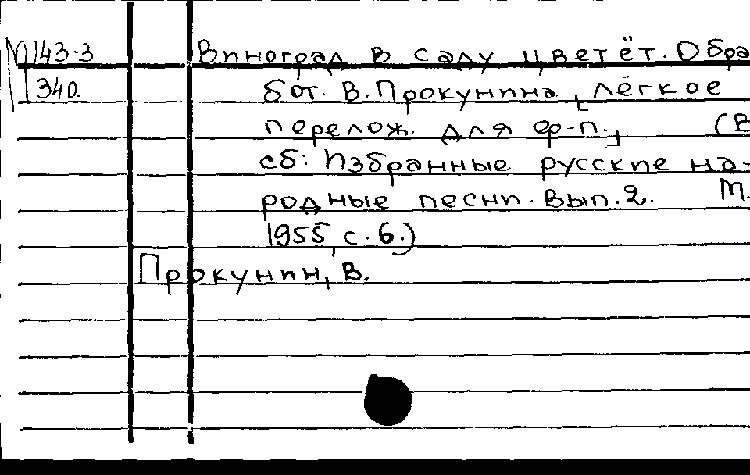 М 143-3 Виноград в саду цветёт. Обра
340. бот. В. Прокунина, лёгкое
перелож. для ф-п., (В
сб: Избранные русские на-
родные песни. Вып. 2. М.
1955, с. 6.)
Прокунин, В.